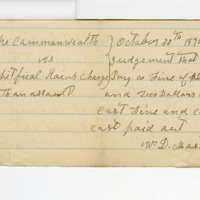 The Commonwealth
vs
Whitfield Rains Charge
to an assault
October 30th 18
Judgement that
Pay as Fine of
and Two Dollars
cost Fine and
cost paid out
Wm D.